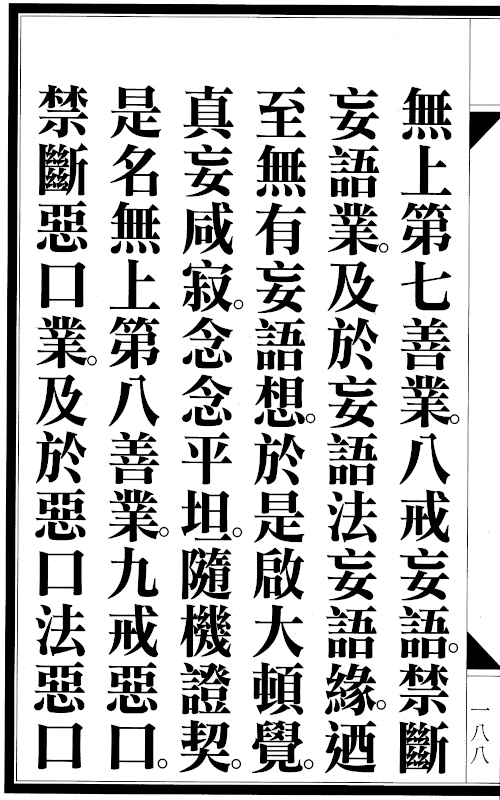 無上第七善業。八戒妄語。禁斷
妄語業。及於妄語法妄語緣。迺
至無有妄語想。於是啟大頓覺。
真妄咸寂。念念平坦。隨機證契。
是名無上第八善業。九戒惡口。
禁斷惡口業。及於惡口法惡口
一八八